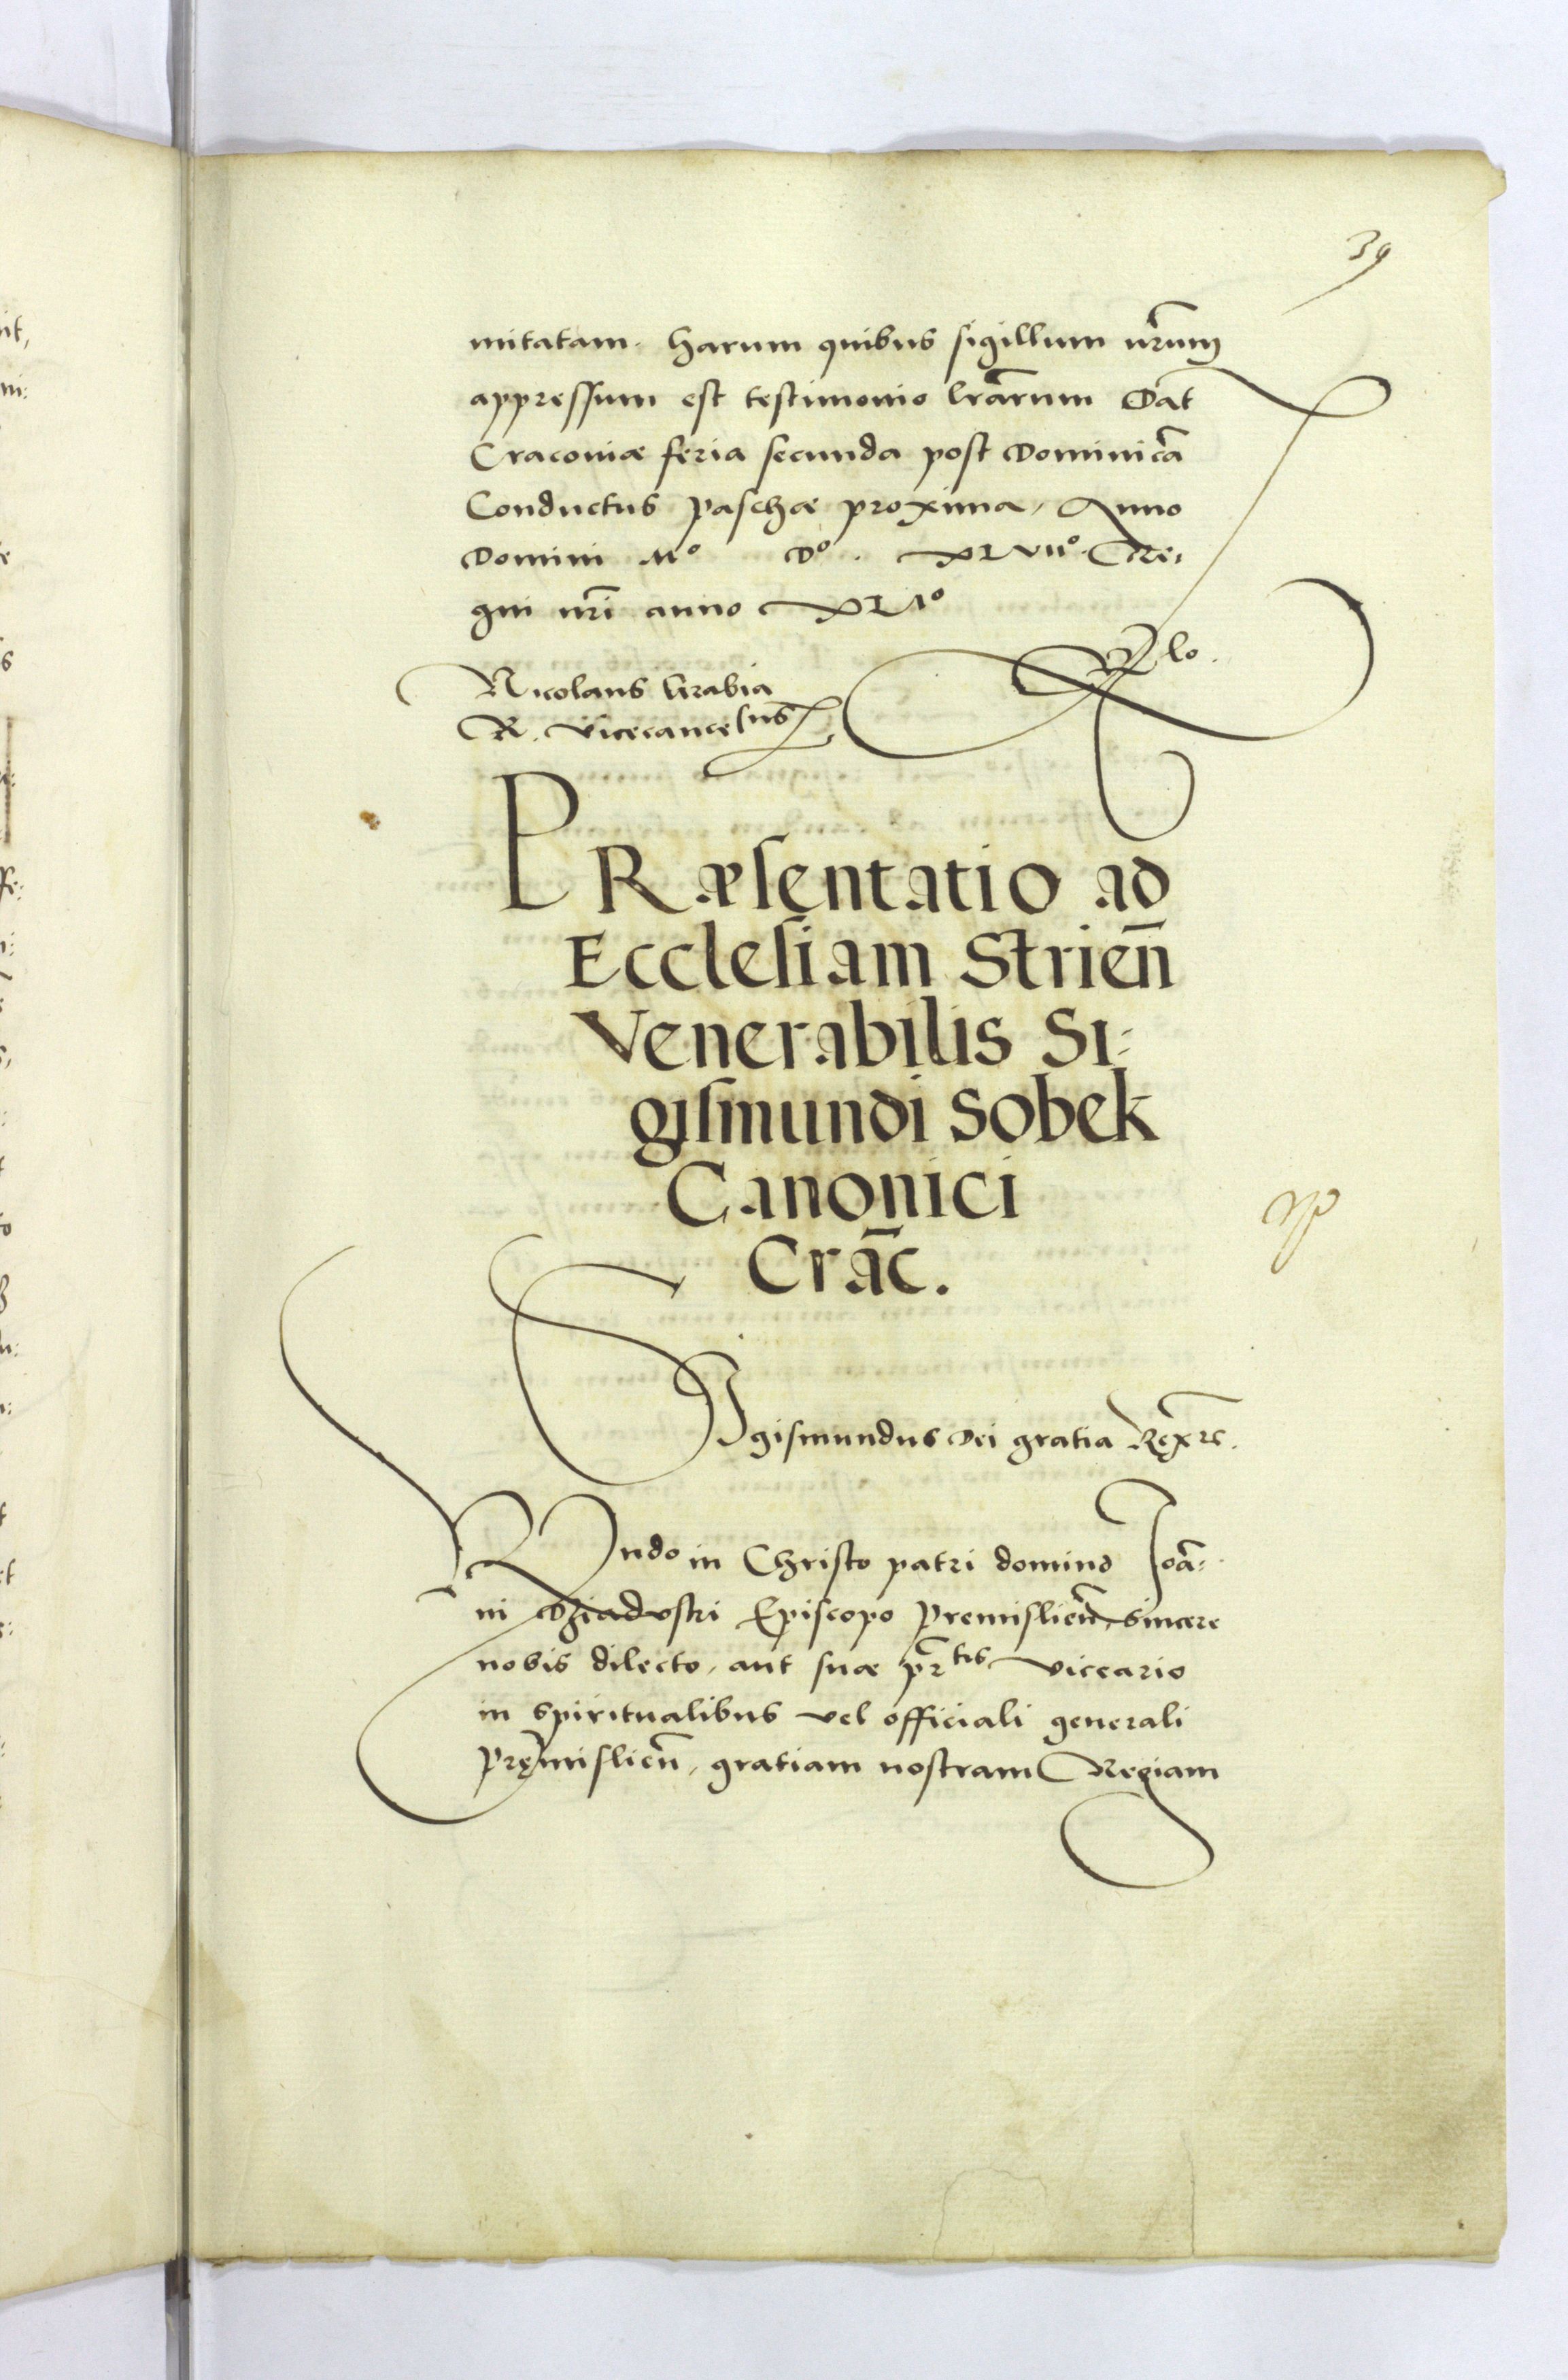 39
mitatam. harum quibus sigillum nr̃um
appressum est testimonio lr̃arum Dat
Cracoviæ feria secunda post Dominicã
Conductus paschæ proxima, Anno
Domini Mº Dº. XLVIIº. Re,
gni nr̃i anno XLIº
Nicolaus Grabia
R. Vicecancellus
Rlo.
PRæsentatio ad
Ecclesiam Strień
Venerabilis Si:
gismundi Sobek
Canonici
Crãc.
SIgismundus Dei gratia Rex ꝛc.
Rndo in Christo patri domino Joã:
ni Dziaduski Episcopo Premislień, sincere
nobis dilecto, aut suæ pr̃tis viceario
in spiritualibus vel officiali generali
Pręmislień, gratiam nostram Regiam